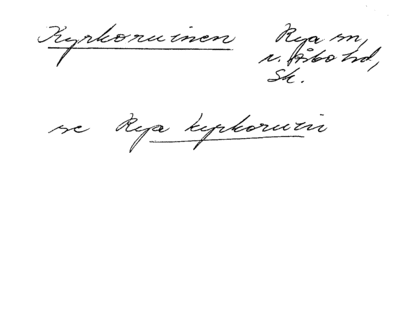 Kyrkoruinen Rya sn,
n. Åsbo hd,
Sk.
se Rya kyrkoruin